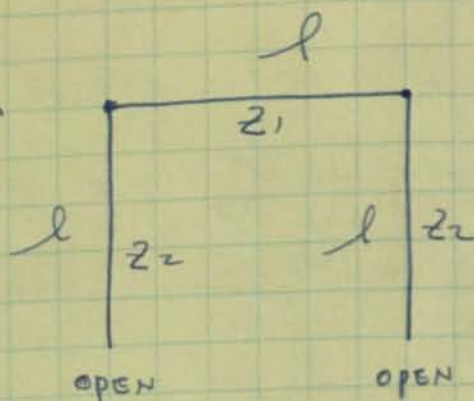 l
Z1
l Z2 l Z2
OPEN OPEN